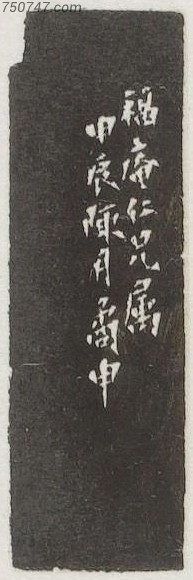 750747.com
福庵仁兄属
甲辰陬月矞申